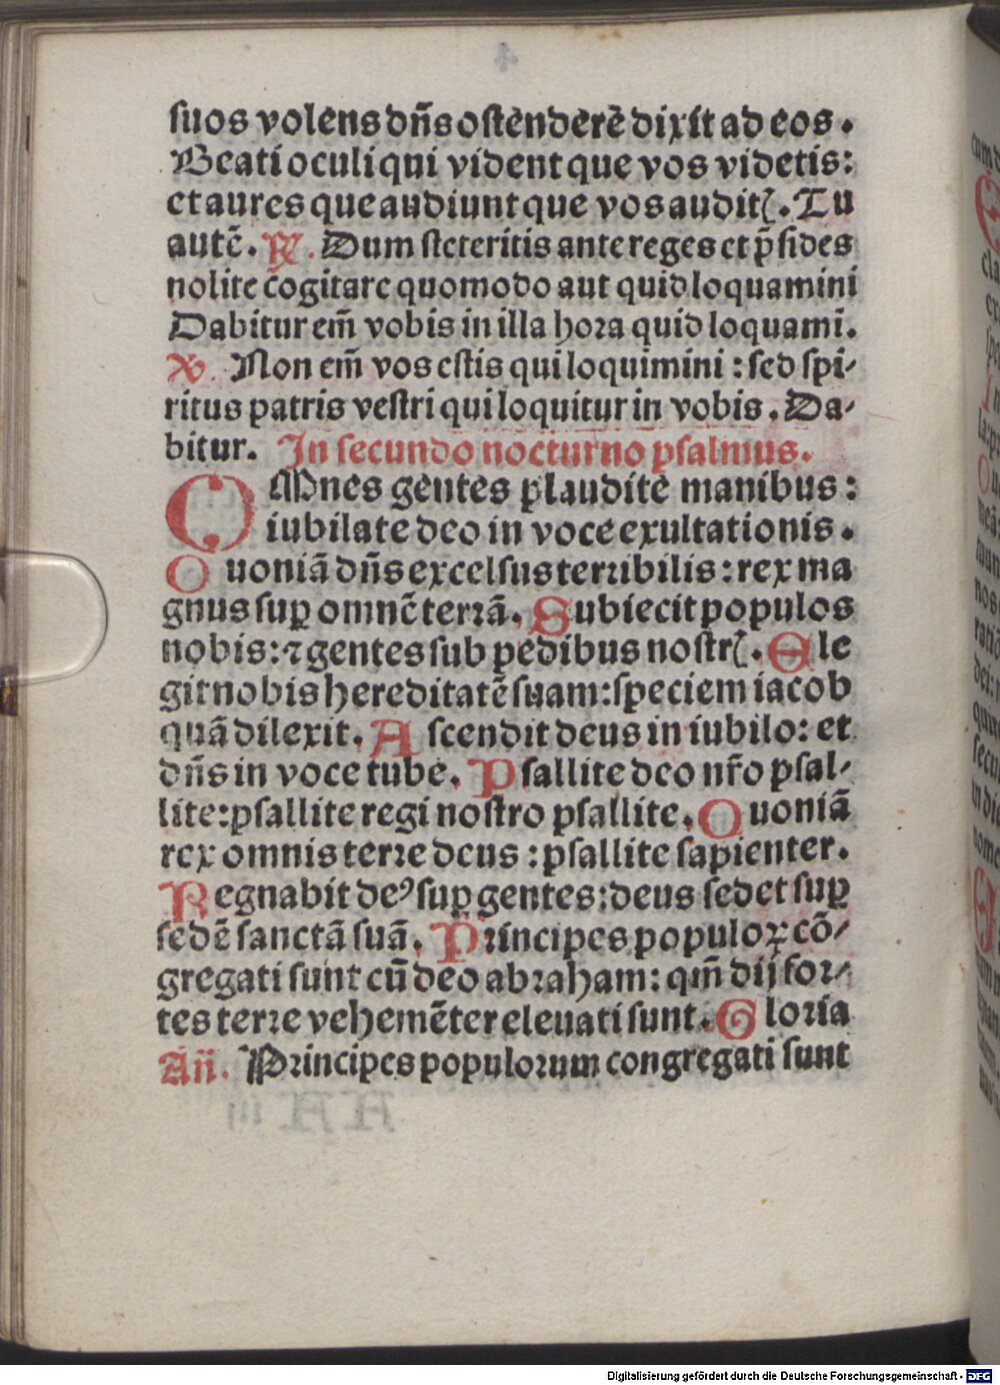 4
ſuos volens dn̄s oſtēnderē dixit ad eos.
Beati oculi qui vident que vos videtis:
et aures que audiunt que vos auditꝭ. Tu
autē. ℟. Dum ſteteritis ante reges et p̄ſides
nolite cōgitare quomodo aut quid loquamini
Dabitur em̄ vobis in illa hora quid loquami.
℣. Non em̄ vos eſtis qui loquimini: ſed ſpi-
ritus patris veſtri qui loquitur in vobis. Da-
bitur. In ſecundo nocturno pſalmus.
OMnes gentes plaudite manibus:
iubilate deo in voce exultationis.
Quoniā dn̄s excelſus terribilis: rex ma
gnus ſuꝑ omnē terrā. Subiecit populos
nobis: ⁊ gentes ſub pedibus noſtrꝭ. Ele
git nobis hereditatē ſuam: ſpeciem iacob
quā dilexit. Aſcendit deus in iubilo: et
dn̄s in voce tube. Pſallite deo nr̄o pſal-
lite: pſallite regi noſtro pſallite. Quoniā
rex omnis terre deus: pſallite ſapienter.
Regnabit deꝰ ſuꝑ gentes: deus ſedet ſuꝑ
ſedē ſanctā ſuā. Principes populoꝝ cō-
gregati ſunt cū deo abraham: qm̄ dij for-
tes terre vehemēter eleuati ſunt. Gloria
Añ. Principes populorum congregati ſunt
Digitalisierung gefördert durch die Deutsche Forschungsgemeinschaft - DFG